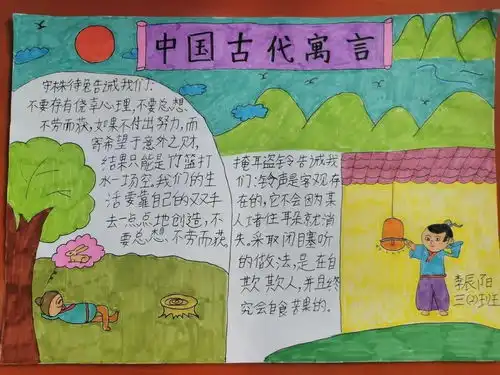 中国古代寓言
守株待兔告诫我们:
不要存有侥幸心理,不要总想
不劳而获,如果不付出努力,而
寄希望于意外之财,
结果只能是竹篮打
水一场空。我们的生
活要靠自己的双手
去一点点地创造,不
要总想不劳而获
掩耳盗铃告诫我
们:铃声是客观存
在的,它不会因为某
人堵住耳朵就消
失。采取闭目塞听
的做法,是在自
欺欺人,并且终
究会自食苦果的。
李辰阳
三(2)班